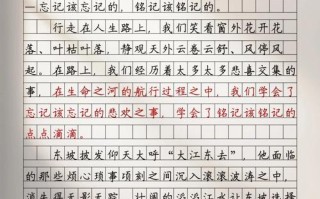 —忘记该忘记的，铭记该铭记的。
行走在人生路上，我们笑看窗外花开花
落、叶枯叶落，静观天外云卷云舒、风停风
起。在路上，我们经历着太多太多悲喜交集的
事，在生命之河的航行过程之中，我们学会了
忘记该忘记的悲欢之事，学会了铭记该铭记的
点点滴滴。
东坡披发仰天大呼“大江东去”，他面临
的那些烦心琐事顷刻之间沉入滚滚波涛之中，
消失得无影无踪，壮阔的滔滔江水让东坡选择